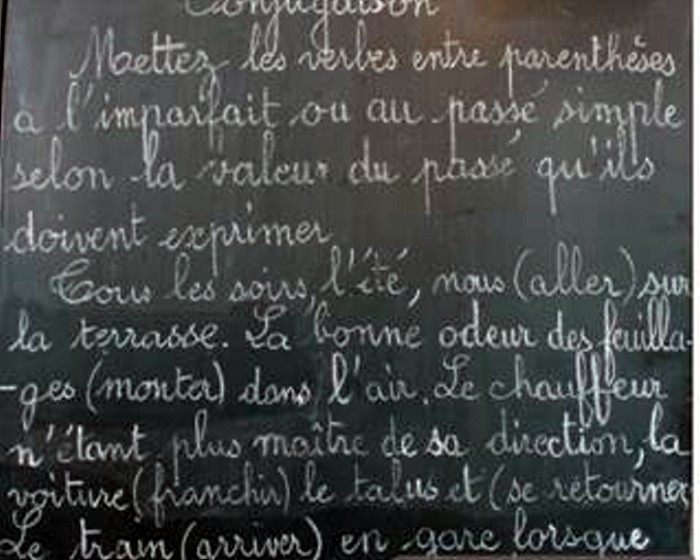 Conjugaison
Mettez les verbes entre parenthèses
à l'imparfait ou au passé simple
selon la valeur du passé qu'ils
doivent exprimer
Tous les soirs, l'été, nous (aller) sur
la terrasse. La bonne odeur des feuilla-
-ges (monter) dans l'air. Le chauffeur
n'étant plus maître de sa direction, la
voiture (franchir) le talus et (se retourner
Le train (arriver) en gare lorsque